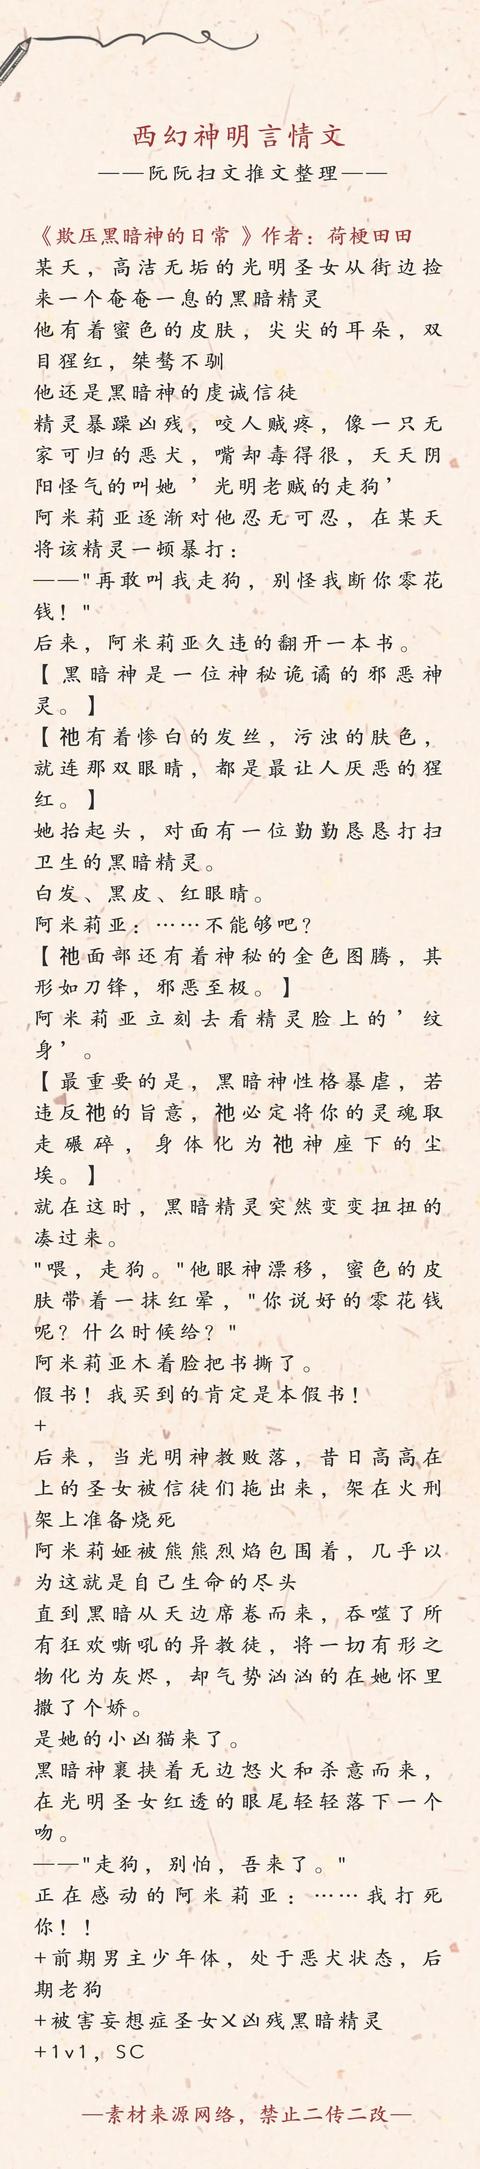 西幻神明言情文
——阮阮扫文推文整理——
《欺压黑暗神的日常 》作者：荷梗田田
某天，高洁无垢的光明圣女从街边捡
来一个奄奄一息的黑暗精灵
他有着蜜色的皮肤，尖尖的耳朵，双
目猩红，桀骜不驯
他还是黑暗神的虔诚信徒
精灵暴躁凶残，咬人贼疼，像一只无
家可归的恶犬，嘴却毒得很，天天阴
阳怪气的叫她 ’光明老贼的走狗’
阿米莉亚逐渐对他忍无可忍，在某天
将该精灵一顿暴打：
——"再敢叫我走狗，别怪我断你零花
钱！"
后来，阿米莉亚久违的翻开一本书。
【黑暗神是一位神秘诡谲的邪恶神
灵。】
【祂有着惨白的发丝，污浊的肤色，
就连那双眼睛，都是最让人厌恶的猩
红。】
她抬起头，对面有一位勤勤恳恳打扫
卫生的黑暗精灵。
白发、黑皮、红眼睛。
阿米莉亚：……不能够吧？
【祂面部还有着神秘的金色图腾，其
形如刀锋，邪恶至极。】
阿米莉亚立刻去看精灵脸上的’纹
身’。
【最重要的是，黑暗神性格暴虐，若
违反祂的旨意，祂必定将你的灵魂取
走碾碎，身体化为祂神座下的尘
埃。】
就在这时，黑暗精灵突然变变扭扭的
凑过来。
"喂，走狗。"他眼神漂移，蜜色的皮
肤带着一抹红晕，"你说好的零花钱
呢？什么时候给？"
阿米莉亚木着脸把书撕了。
假书！我买到的肯定是本假书！
+
后来，当光明神教败落，昔日高高在
上的圣女被信徒们拖出来，架在火刑
架上准备烧死
阿米莉娅被熊熊烈焰包围着，几乎以
为这就是自己生命的尽头
直到黑暗从天边席卷而来，吞噬了所
有狂欢嘶吼的异教徒，将一切有形之
物化为灰烬，却气势汹汹的在她怀里
撒了个娇。
是她的小凶猫来了。
黑暗神裹挟着无边怒火和杀意而来，
在光明圣女红透的眼尾轻轻落下一个
吻。
——"走狗，别怕，吾来了。"
正在感动的阿米莉亚：……我打死
你！！
+前期男主少年体，处于恶犬状态，后
期老狗
+被害妄想症圣女乂凶残黑暗精灵
+1v1，SC
—素材来源网络，禁止二传二改—